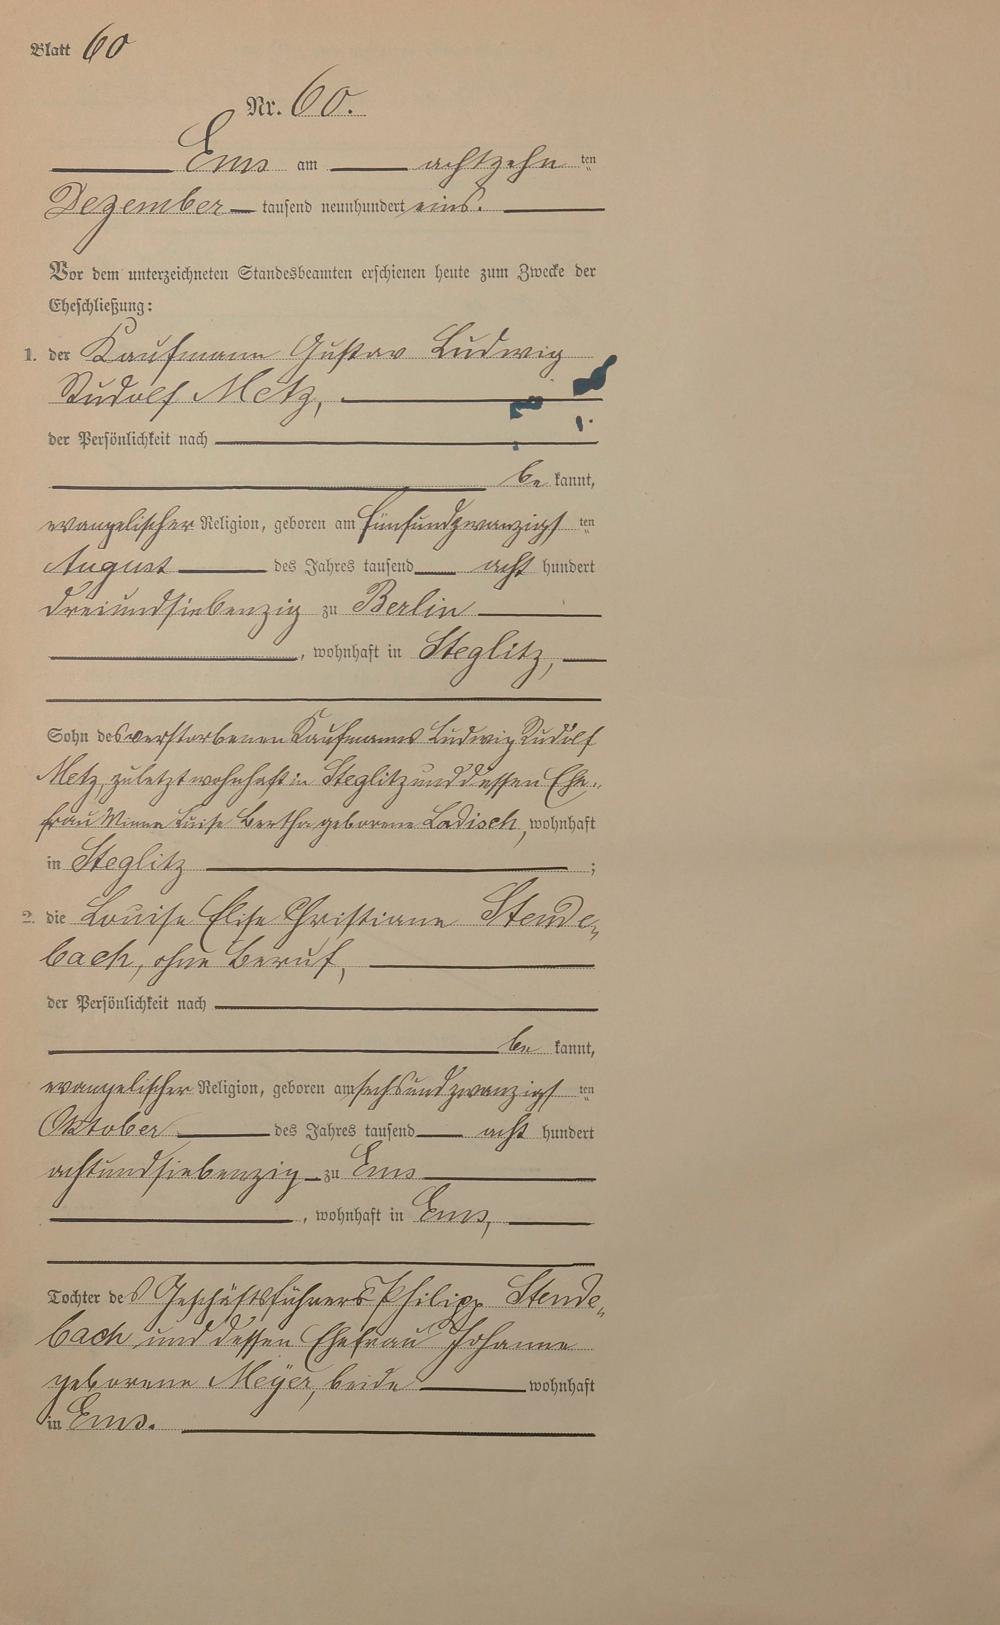 Blatt 60
Nr. 60.
Ems am achtzehn ten
Dezember tausend neunhundert eins.
Vor dem unterzeichneten Standesbeamten erschienen heute zum Zwecke der
Eheschließung:
1. der Kaufmann Gustav Ludwig
Rudolf Metz,
der Persönlichkeit nach
be kannt,
evangelischer Religion, geboren am fünfundzwanzigst ten
August des Jahres tausend acht hundert
dreiundsiebenzig zu Berlin
, wohnhaft in Steglitz,
Sohn des verstorbenen Kaufmanns Ludwig Rudolf
Metz, zuletzt wohnhaft in Steglitz und dessen Ehe-
frau Minna Luise Bertha geborene Ladisch, wohnhaft
in Steglitz ;
2. die Louise Elise Christiane Stende-
bach, ohne Beruf,
der Persönlichkeit nach
be kannt,
evangelischer Religion, geboren am sechsundzwanzigst ten
Oktober des Jahres tausend acht hundert
achtundsiebenzig zu Ems
, wohnhaft in Ems,
Tochter des Geschäftsführers Philipp Stende-
bach und dessen Ehefrau Johanna
geborene Meyer, beide wohnhaft
in Ems.